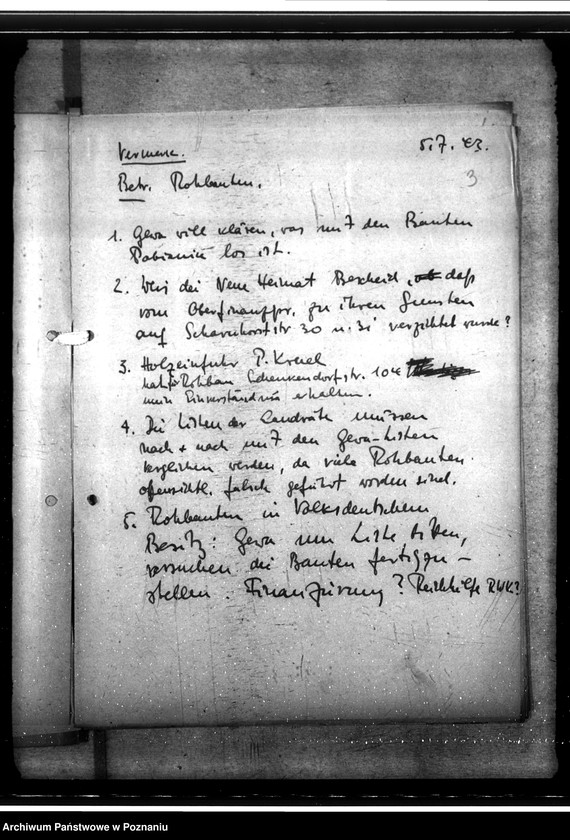 Vermerk.
5.7.43.
3
Betr. Rohbauten.
1. Gewa will klären, was mit den Bauten
Pabianitz los ist.
2. Weiß die Neue Heimat Bescheid, daß
vom Oberfinanzpr. zu ihren Gunsten
auf Scharnhorststr 30 u. 31 verzichtet wurde?
3. Holzeinfuhr P. Kreuel
hat Rohbau Schenkendorfstr. 104
mein Einverständnis erhalten.
4. Die Listen der Landräte müssen
nach + nach mit den Gewa-Listen
verglichen werden, da viele Rohbauten
offensichtl. falsch geführt worden sind.
5. Rohbauten in Volksdeutschem
Besitz: Gewa um Liste bitten,
versuchen die Bauten fertigzu-
stellen. Finanzierung? Reichshilfe RWK?
Archiwum Państwowe w Poznaniu